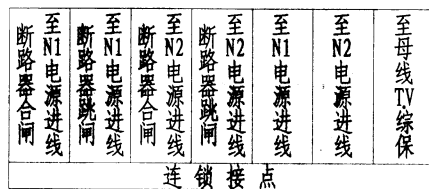 至N1电源进线
断路器合闸
至N1电源进线
断路器跳闸
至N2电源进线
断路器合闸
至N2电源进线
断路器跳闸
至N1电源进线
至N2电源进线
至母线TV综保
连锁接点